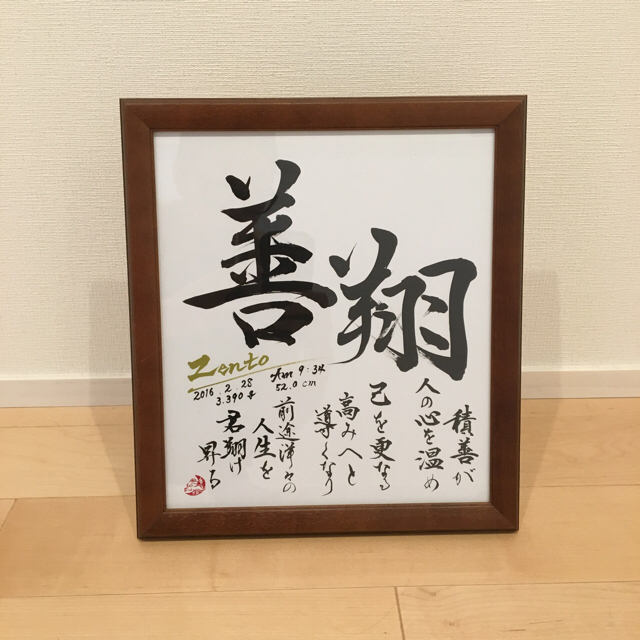 善翔
Zento
2016.2.28
Am 9.34
3.390g
52.0cm
積善が
人の心を温め
己を更なる
高みへと
導くなり
前途洋々の
人生を
君翔け
昇る